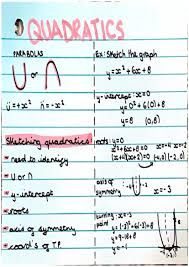 QUADRATICS
PARABOLAS
U or ∩
y=x² y=-x²
Sketching quadratics
need to identify
U or ∩
y-intercept
roots
axis of symmetry
coord's of T.P.
Ex: Sketch the graph
y=x²+6x+8
y-intercept: x=0
y=0²+6(0)+8
y=8
roots: y=0
x²+6x+8=0
(x+4)(x+2)=0
x=-4 x=-2
(-4,0) (-2,0)
axis of
symmetry
x=-3
turning
point
x=-3
y=(-3)²+6(-3)+8
y=9-18+8
y=-1